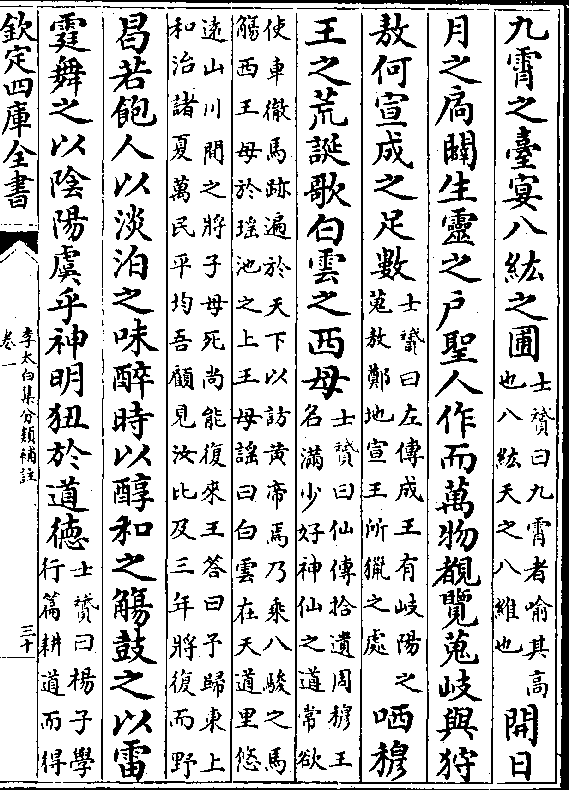 九霄之臺宴八紘之圃士贇曰九霄者喻其高也八紘天之八維也開日
月之扃闢生靈之户聖人作而萬物覩覽蒐岐與狩
敖何宣成之足數士贇曰左傳成王有岐陽之蒐敖鄭地宣王所獵之處哂穆
王之荒誕歌白雲之西母士贇曰仙傳拾遺周穆王名滿少好神仙之道常欲
使車徹馬跡遍於天下以訪黄帝焉乃乘八駿之馬觴西王母於瑶池之上王母謡曰白雲在天道里悠
逺山川間之將子母死尚能復來王答曰予歸東上和治諸夏萬民平均吾顧見汝比及三年將復而野
曷若飽人以淡泊之味醉時以醇和之觴鼓之以雷
霆舞之以陰陽虞乎神明狃於道德士贇曰楊子學行篇耕道而得
欽定四庫全書
李太白集分類補註
卷一
三十